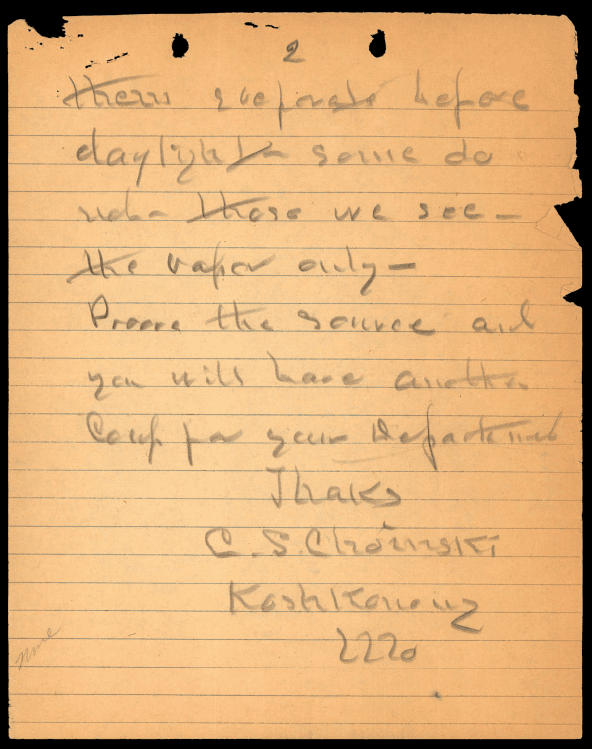 2
them evaporate before
daylight - some do
not - those we see -
the vapor only -
Proove the source and
you will have another
Coup for your Department
Thaks
C. S. Chominski
Koshkonong
2220